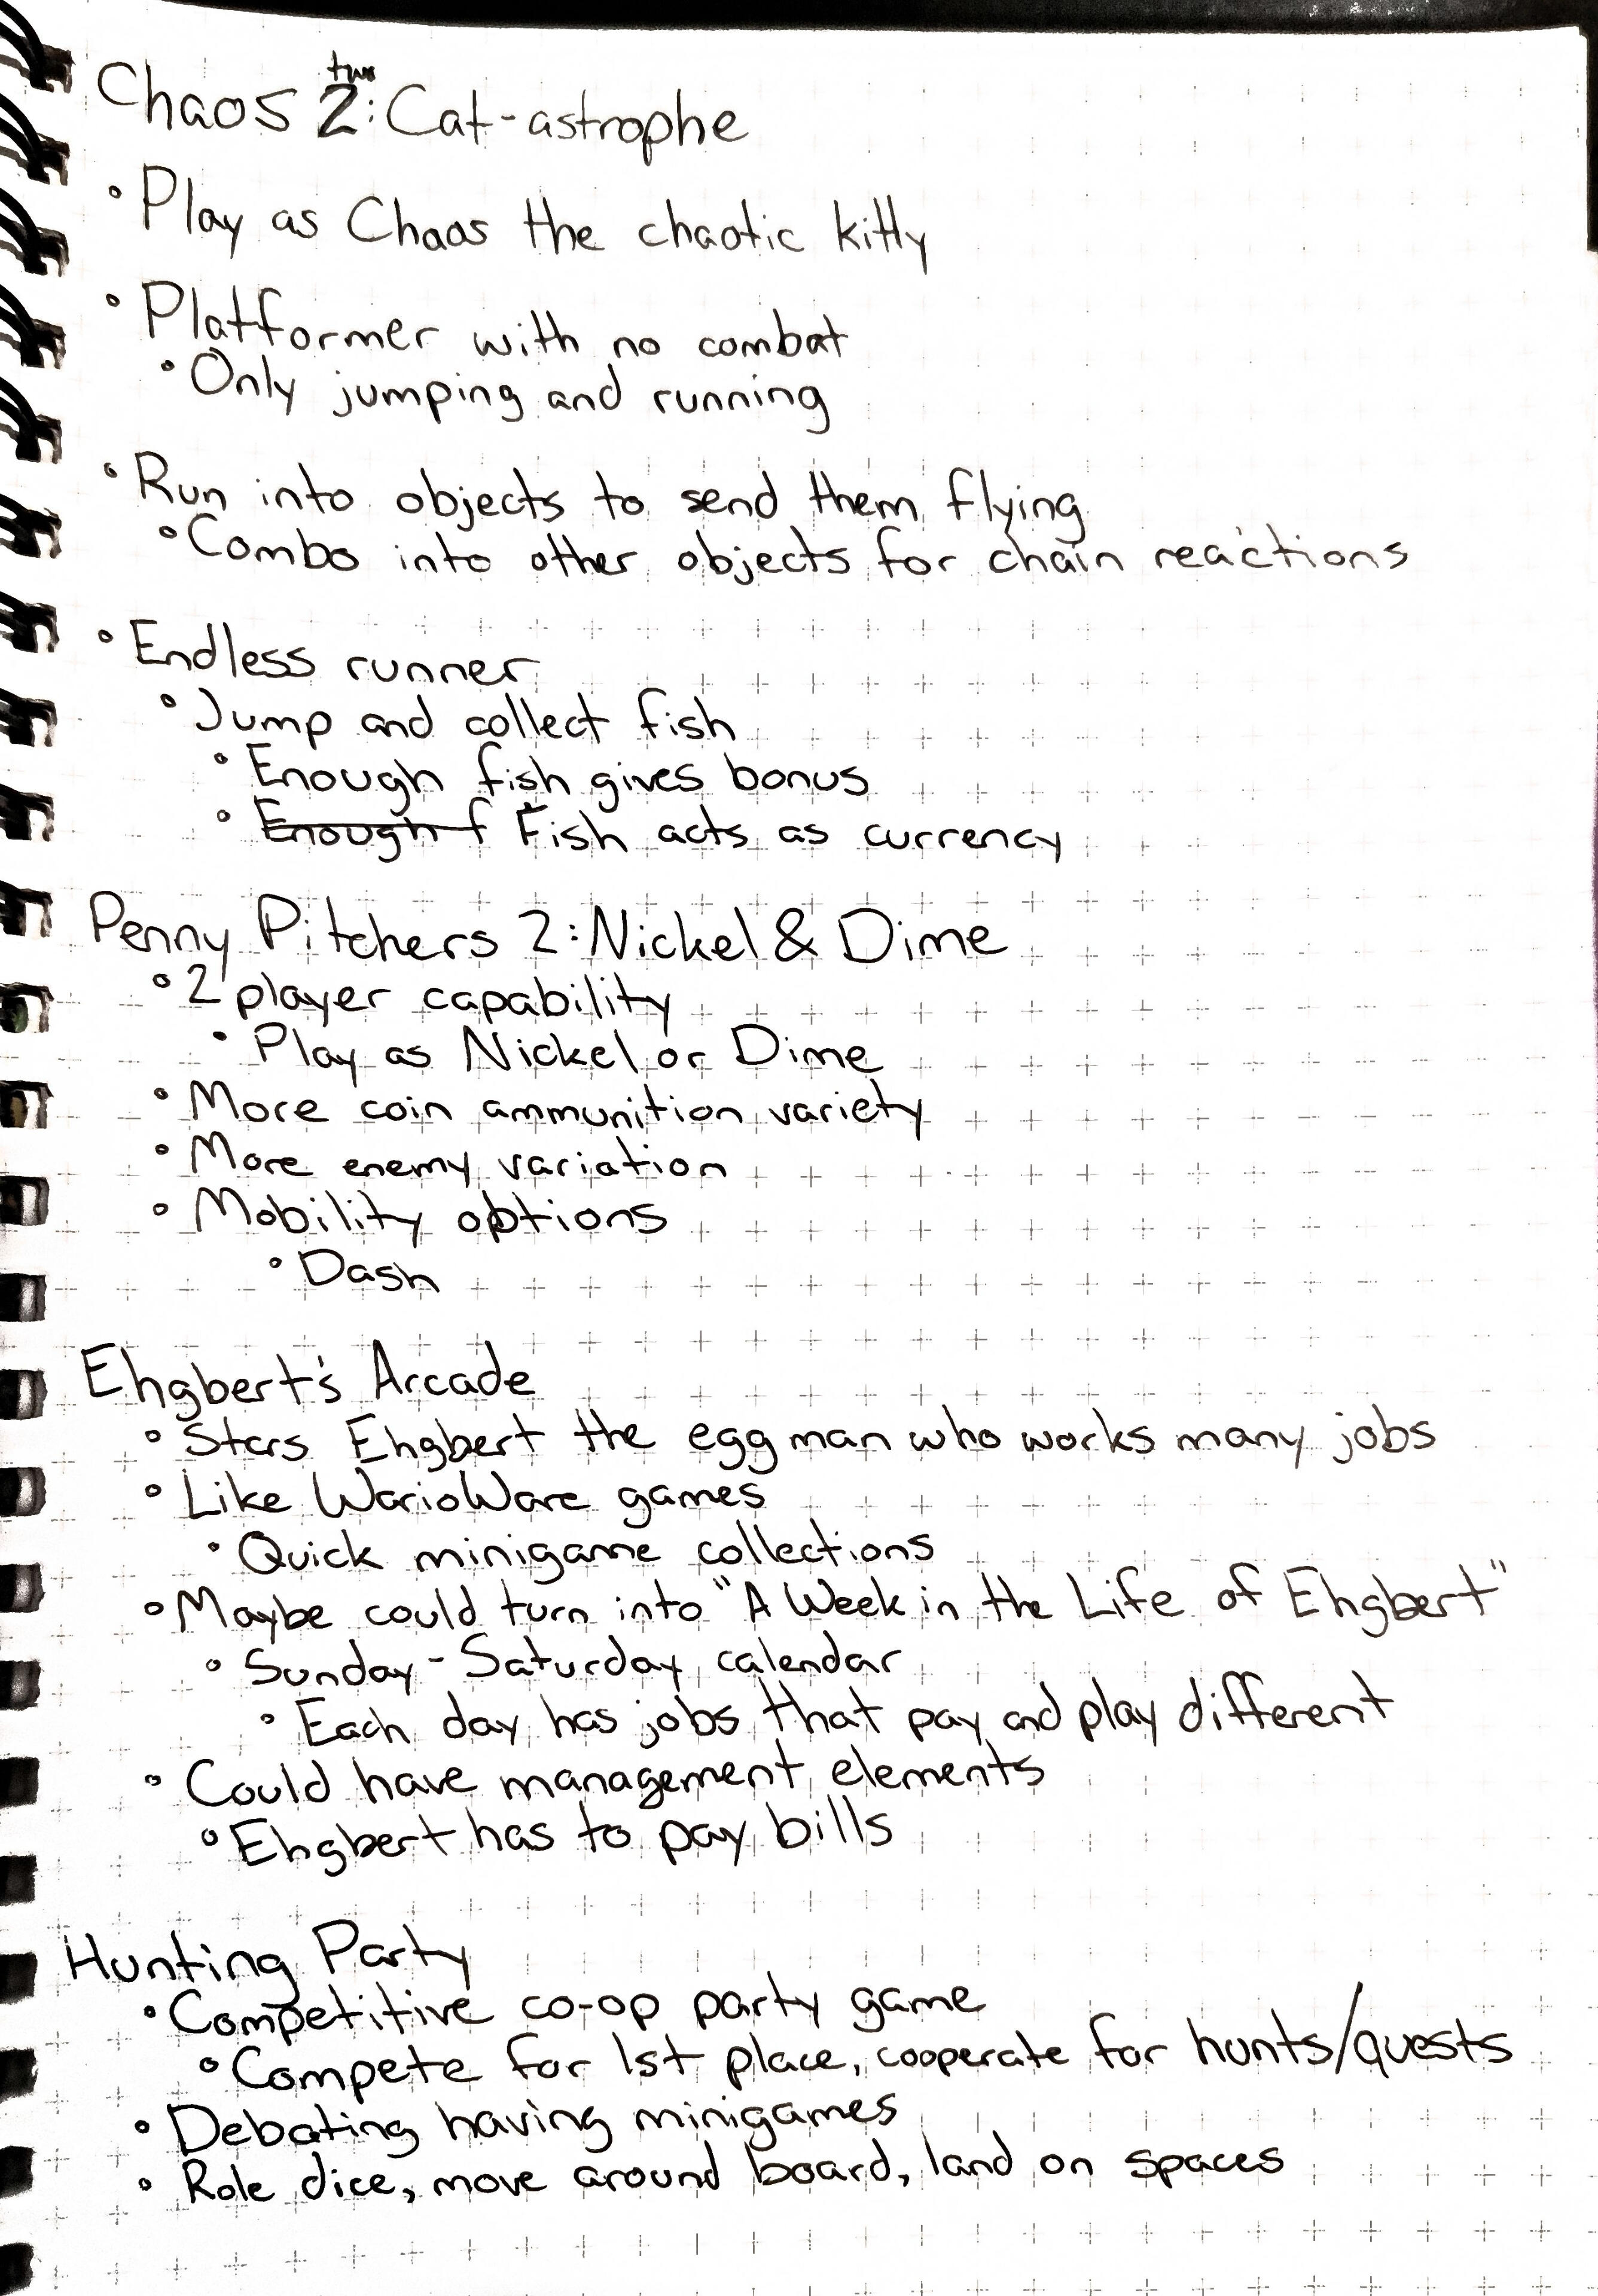 two
Chaos 2: Cat-astrophe
° Play as Chaos the chaotic kitty
° Platformer with no combat
° Only jumping and running
° Run into objects to send them flying
° Combo into other objects for chain reactions
° Endless runner
° Jump and collect fish
° Enough fish gives bonus
° Enough f Fish acts as currency
Penny Pitchers 2: Nickel & Dime
° 2 player capability
° Play as Nickel or Dime
° More coin ammunition variety
° More enemy variation
° Mobility options
° Dash
Ehgbert's Arcade
° Stars Ehgbert the egg man who works many jobs
° Like WarioWare games
° Quick minigame collections
° Maybe could turn into "A Week in the Life of Ehgbert"
° Sunday - Saturday calendar
° Each day has jobs that pay and play different
° Could have management elements
° Ehgbert has to pay bills
Hunting Party
° Competitive co-op party game
° Compete for 1st place, cooperate for hunts/quests
° Debating having minigames
° Role dice, move around board, land on spaces